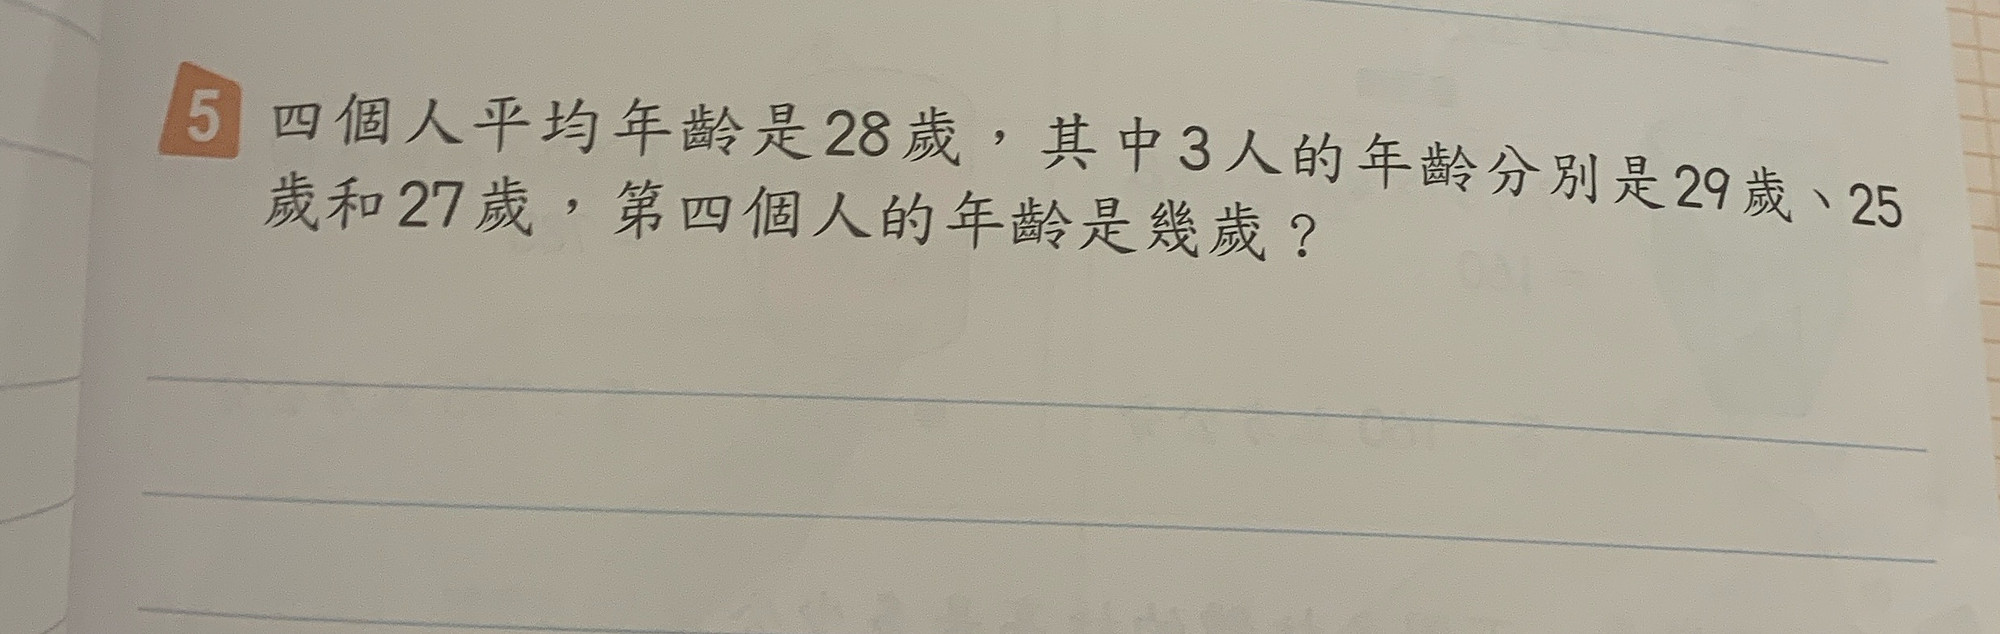 5 四個人平均年齡是28歲，其中3人的年齡分別是29歲、25
歲和27歲，第四個人的年齡是幾歲？